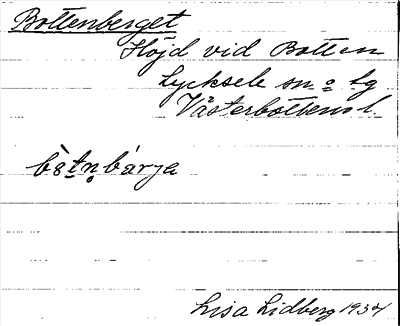 Bottenberget
Höjd vid Botten
Lycksele sn. o lg
Västerbottens l.
bòtn̥bárja
Lisa Lidberg 1934